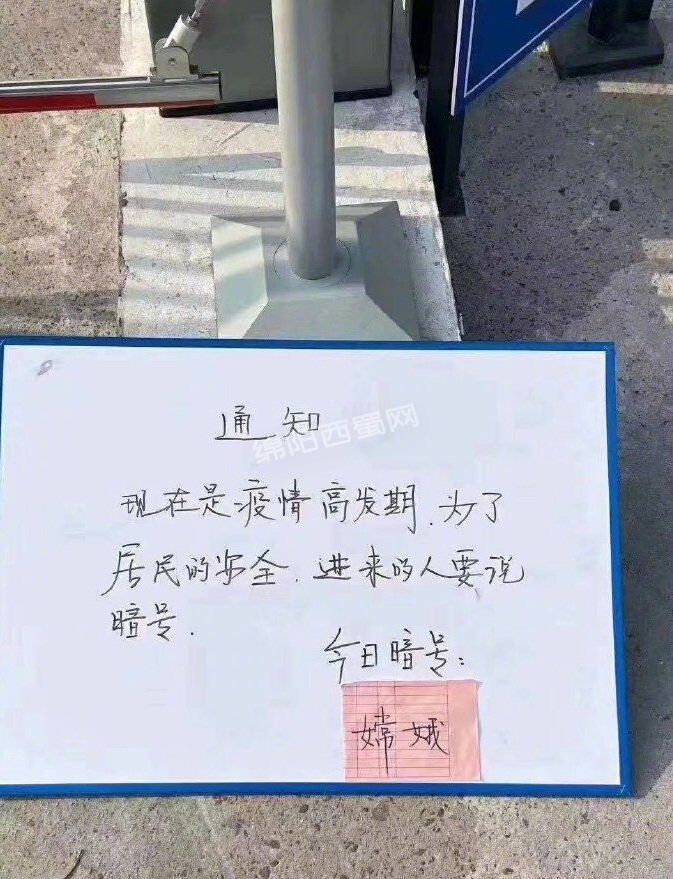 通知
绵阳西蜀网
现在是疫情高发期.为了
居民的安全.进来的人要说
暗号.
今日暗号:
嫦娥